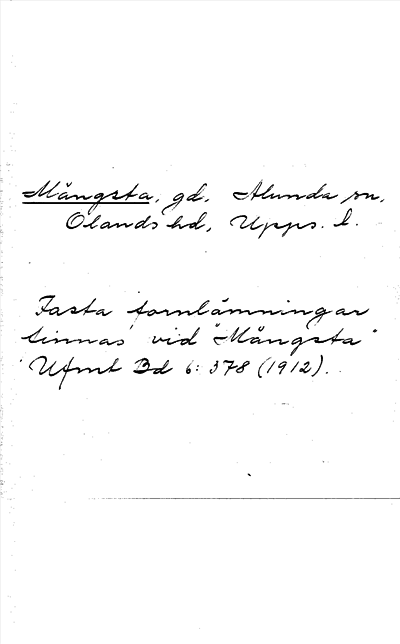 Mångsta, gd, Alunda sn,
Olands hd, Upps. l.
Fasta fornlämningar
finnas vid "Mångsta"
Ufmt Bd 6: 378 (1912).